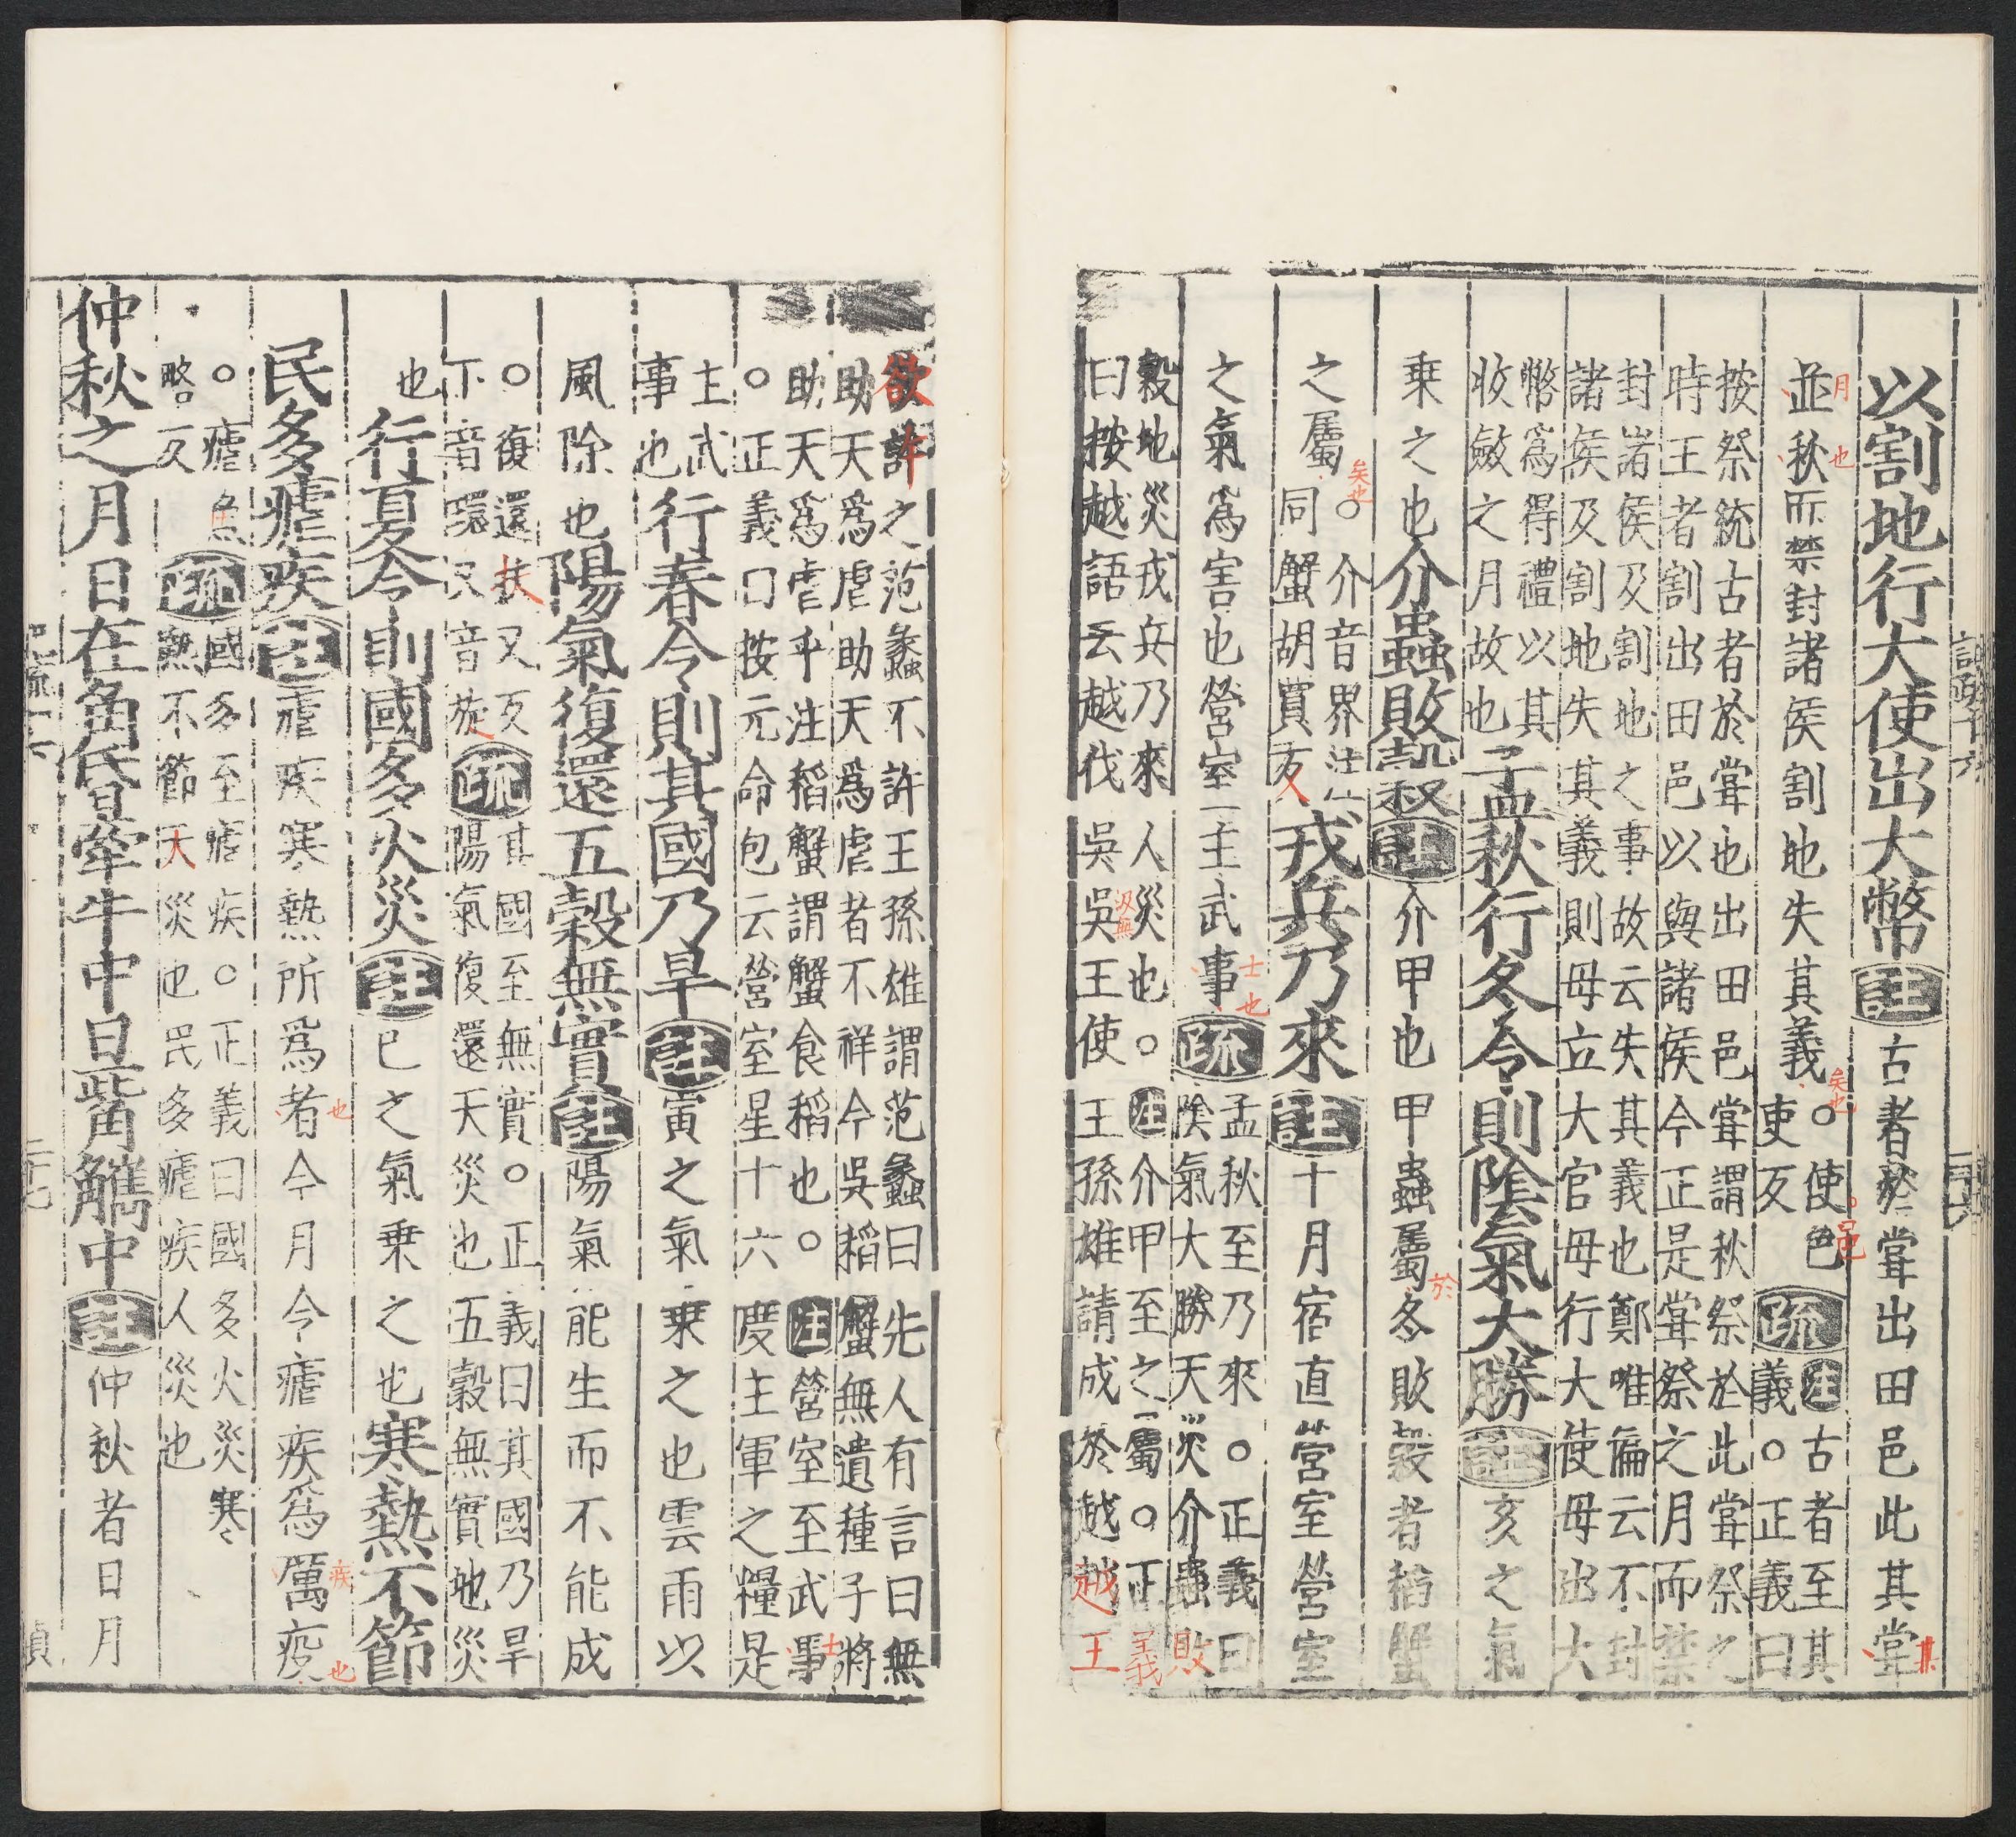 以割地行大使出大幣註古者於嘗出田邑此其嘗
並秋而禁封諸侯割地失其義。使色
吏反疏注古者至其
義。正義曰
按祭統古者於嘗也出田邑嘗謂秋祭於此嘗祭之
時王者割出田邑以與諸侯今正是嘗祭之月而禁
封諸侯及割地之事故云失其義也鄭唯偏云不封
諸侯及割地失其義則毋立大官毋行大使毋出大
幣爲得禮以其
收斂之月故也孟秋行冬令則陰氣大勝註亥之氣
乗之也介蟲敗穀註介甲也甲蟲屬冬敗穀者稻蟹
之屬。介音界注
同蟹胡買反戎兵乃來註十月宿直營室營室
之氣爲害也營室主武事疏孟秋至乃來。正義曰
陰氣大勝天災介蟲敗
穀地災戎兵乃來人災也。注介甲至之屬。正義
曰按越語云越伐吳吳王使王孫雄請成於越越王
欲許之范蠡不許王孫雄謂范蠡曰先人有言曰無
助天爲虐助天爲虐者不祥今吳稻蟹無遺種子將
助天爲虐乎注稻蟹謂蟹食稻也。注營室至武事
。正義曰按元命包云營室星十六度主軍之糧是
主武
事也行春令則其國乃旱註寅之氣乗之也雲雨以
風除也陽氣復還五穀無實註陽氣能生而不能成
。復還扶又反
下音環又音旋疏其國至無實。正義曰其國乃旱
陽氣復還天災也五穀無實地災
也行夏令則國多火災註巳之氣乗之也寒熱不節
民多瘧疾註瘧疾寒熱所爲者今月令瘧疾爲厲疫
。瘧魚
略反疏國多至瘧疾。正義曰國多火災寒
熱不節天災也民多瘧疾人災也
仲秋之月日在角昏牽牛中旦觜觿中註仲秋者日月